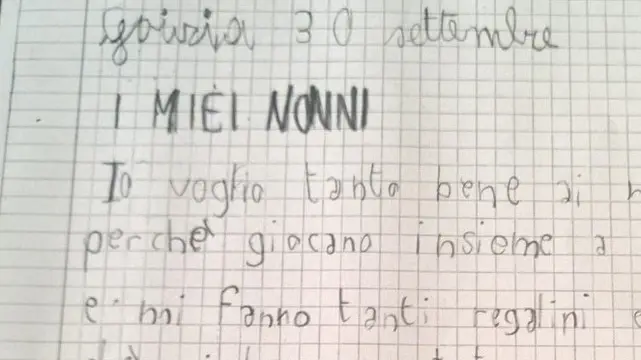 30 settembre
I MIEI NONNI
Io voglio tanto bene ai
perché giocano insieme a
e mi fanno tanti regalini e